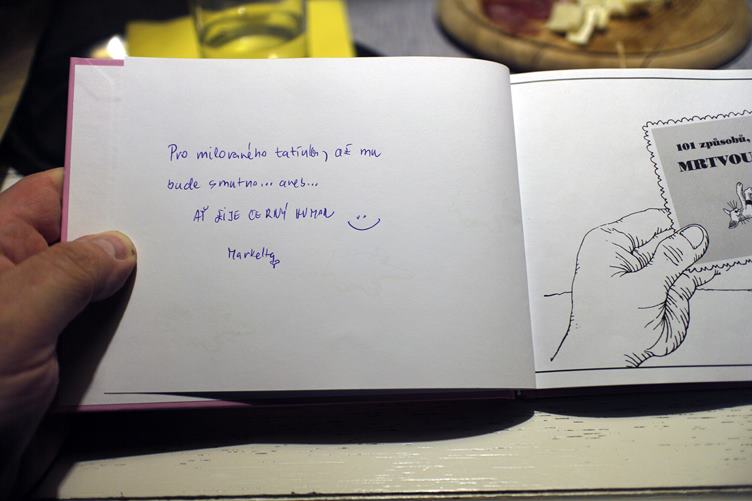 Pro milovaného tatínka, až mu
bude smutno... aneb...
AŤ ŽIJE ČERNÝ HUMOR
Markétka
101 způsobů,
MRTVOU